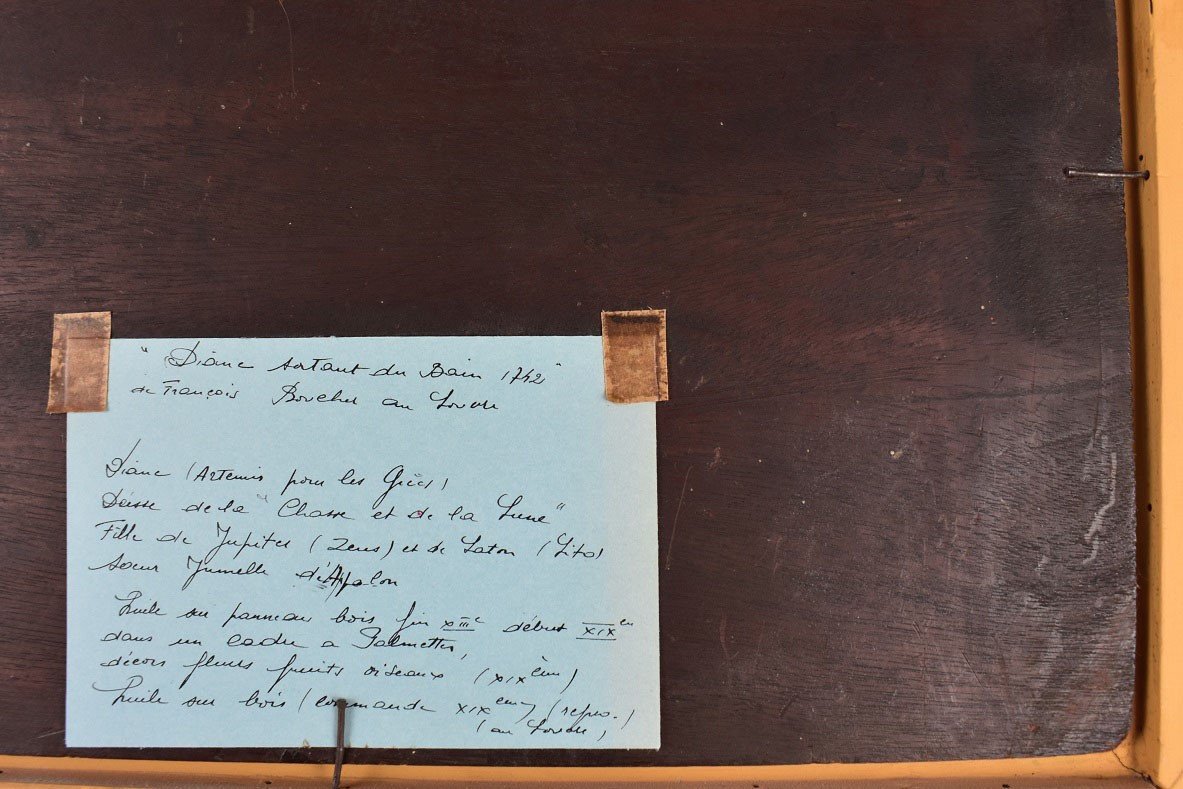 "Diane sortant du Bain 1742"
de François Boucher au Louvre
Diane (Artemis pour les Grecs)
Déesse de la "Chasse et de la Lune"
Fille de Jupiter (Zeus) et de Laton (Lito)
Soeur Jumelle d'Apolon
Huile sur panneau bois fin début XIXem
dans un cadre a Palmettes,
décors fleurs fruits oiseaux (XIXèm)
Huile sur bois (commande XIXem) (repro.)
(au Louvre)